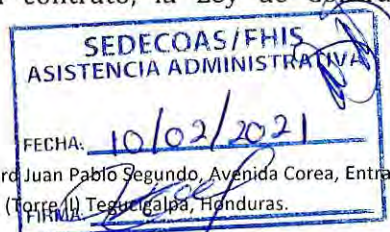 contrato, la Ley de
SEDECOAS/FHIS
ASISTENCIA ADMINISTRATIVA
FECHA: 10/02/2021
Juan Pablo Segundo, Avenida Corea,
(Torre II) Tegucigalpa, Honduras.
FIRMA: